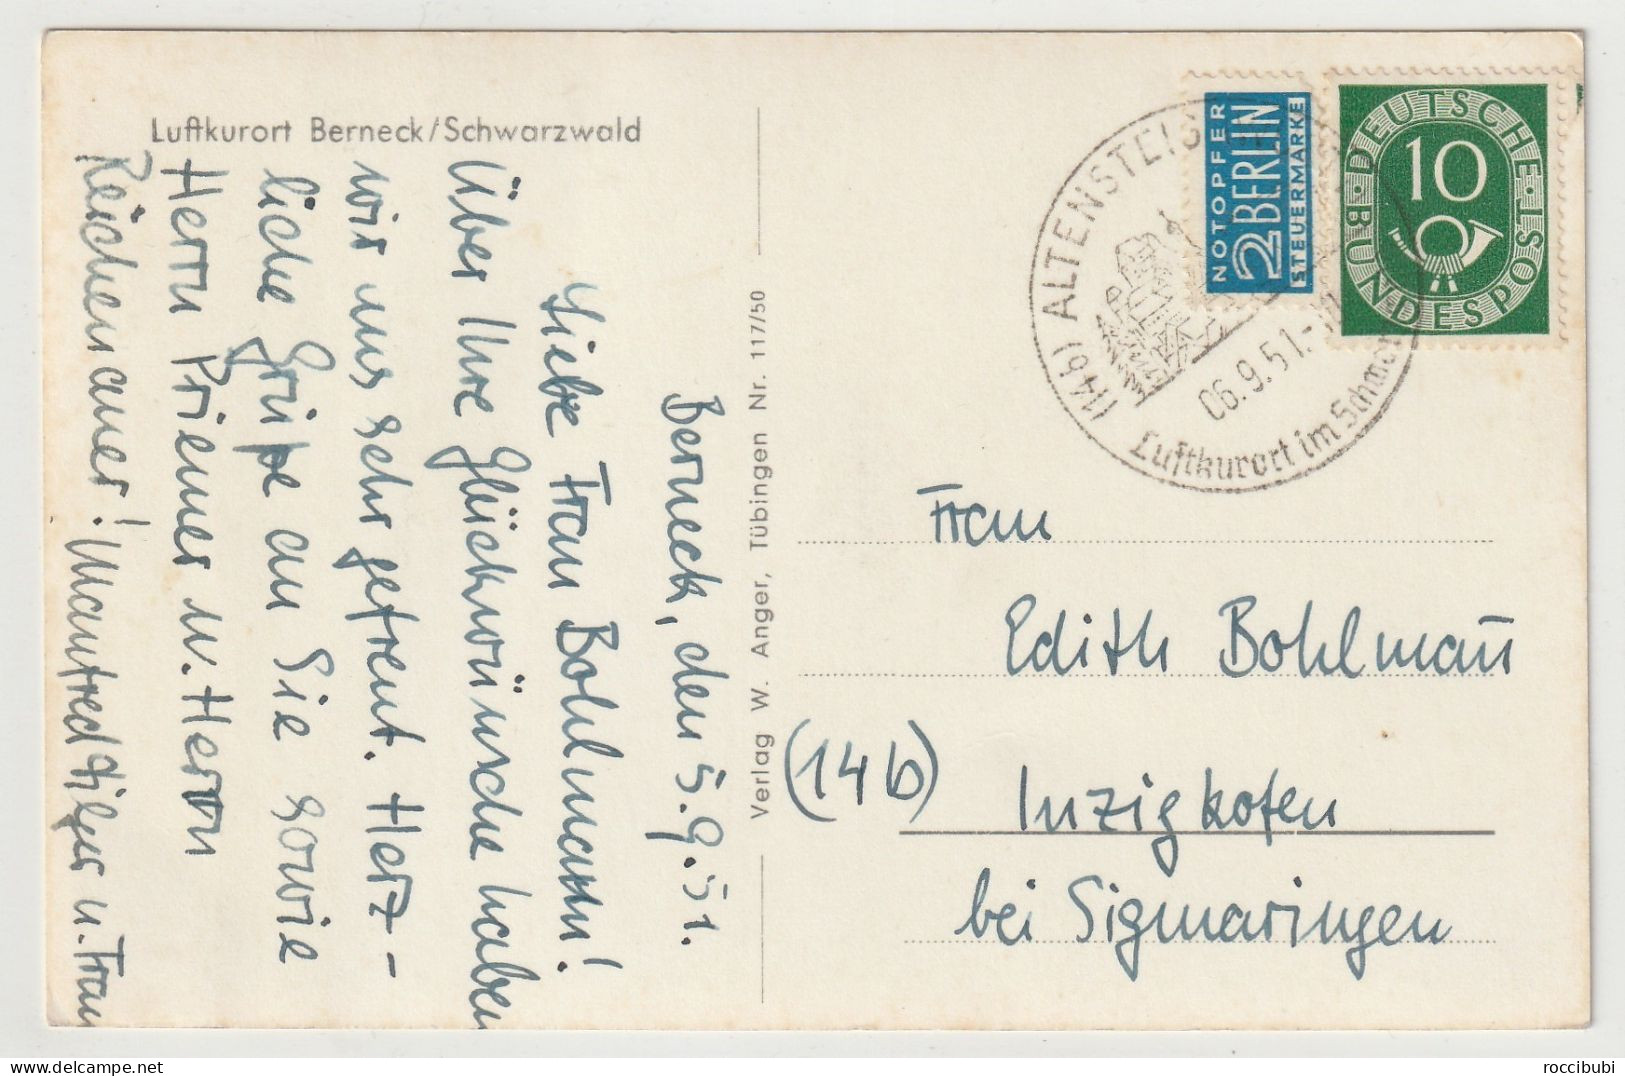 Luftkurort Berneck/Schwarzwald
Berneck, den 5.9.51.
Liebe Frau Bohlmann!
Über Ihre Glückwünsche haben
wir uns sehr gefreut. Herz-
liche Grüße an Sie sowie
Herrn Priemer u. Herrn
Reichenauer! Manfred Hilger u. Frau
Verlag W. Anger, Tübingen Nr. 117/50
(14b) ALTENSTEIG
06.9.51.-
Luftkurort im Schwar
NOTOPFER
2 BERLIN
STEUERMARKE
DEUTSCHE BUNDESPOST
10
Frau
Edith Bohlmañ
(14b)
Inzigkofen
bei Sigmaringen
roccibubi